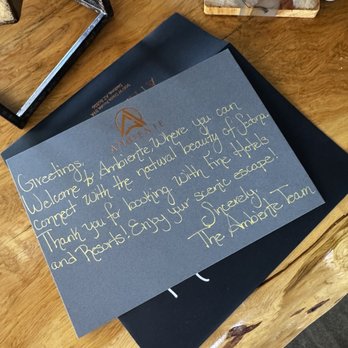 AMBIENTE
Greetings,
Welcome to Ambiente, Where you can
connect with the natural beauty of Sedona
Thank you for booking with Fine Hotels
and Resorts! Enjoy your scenic escape!
Sincerely,
The Ambiente Team